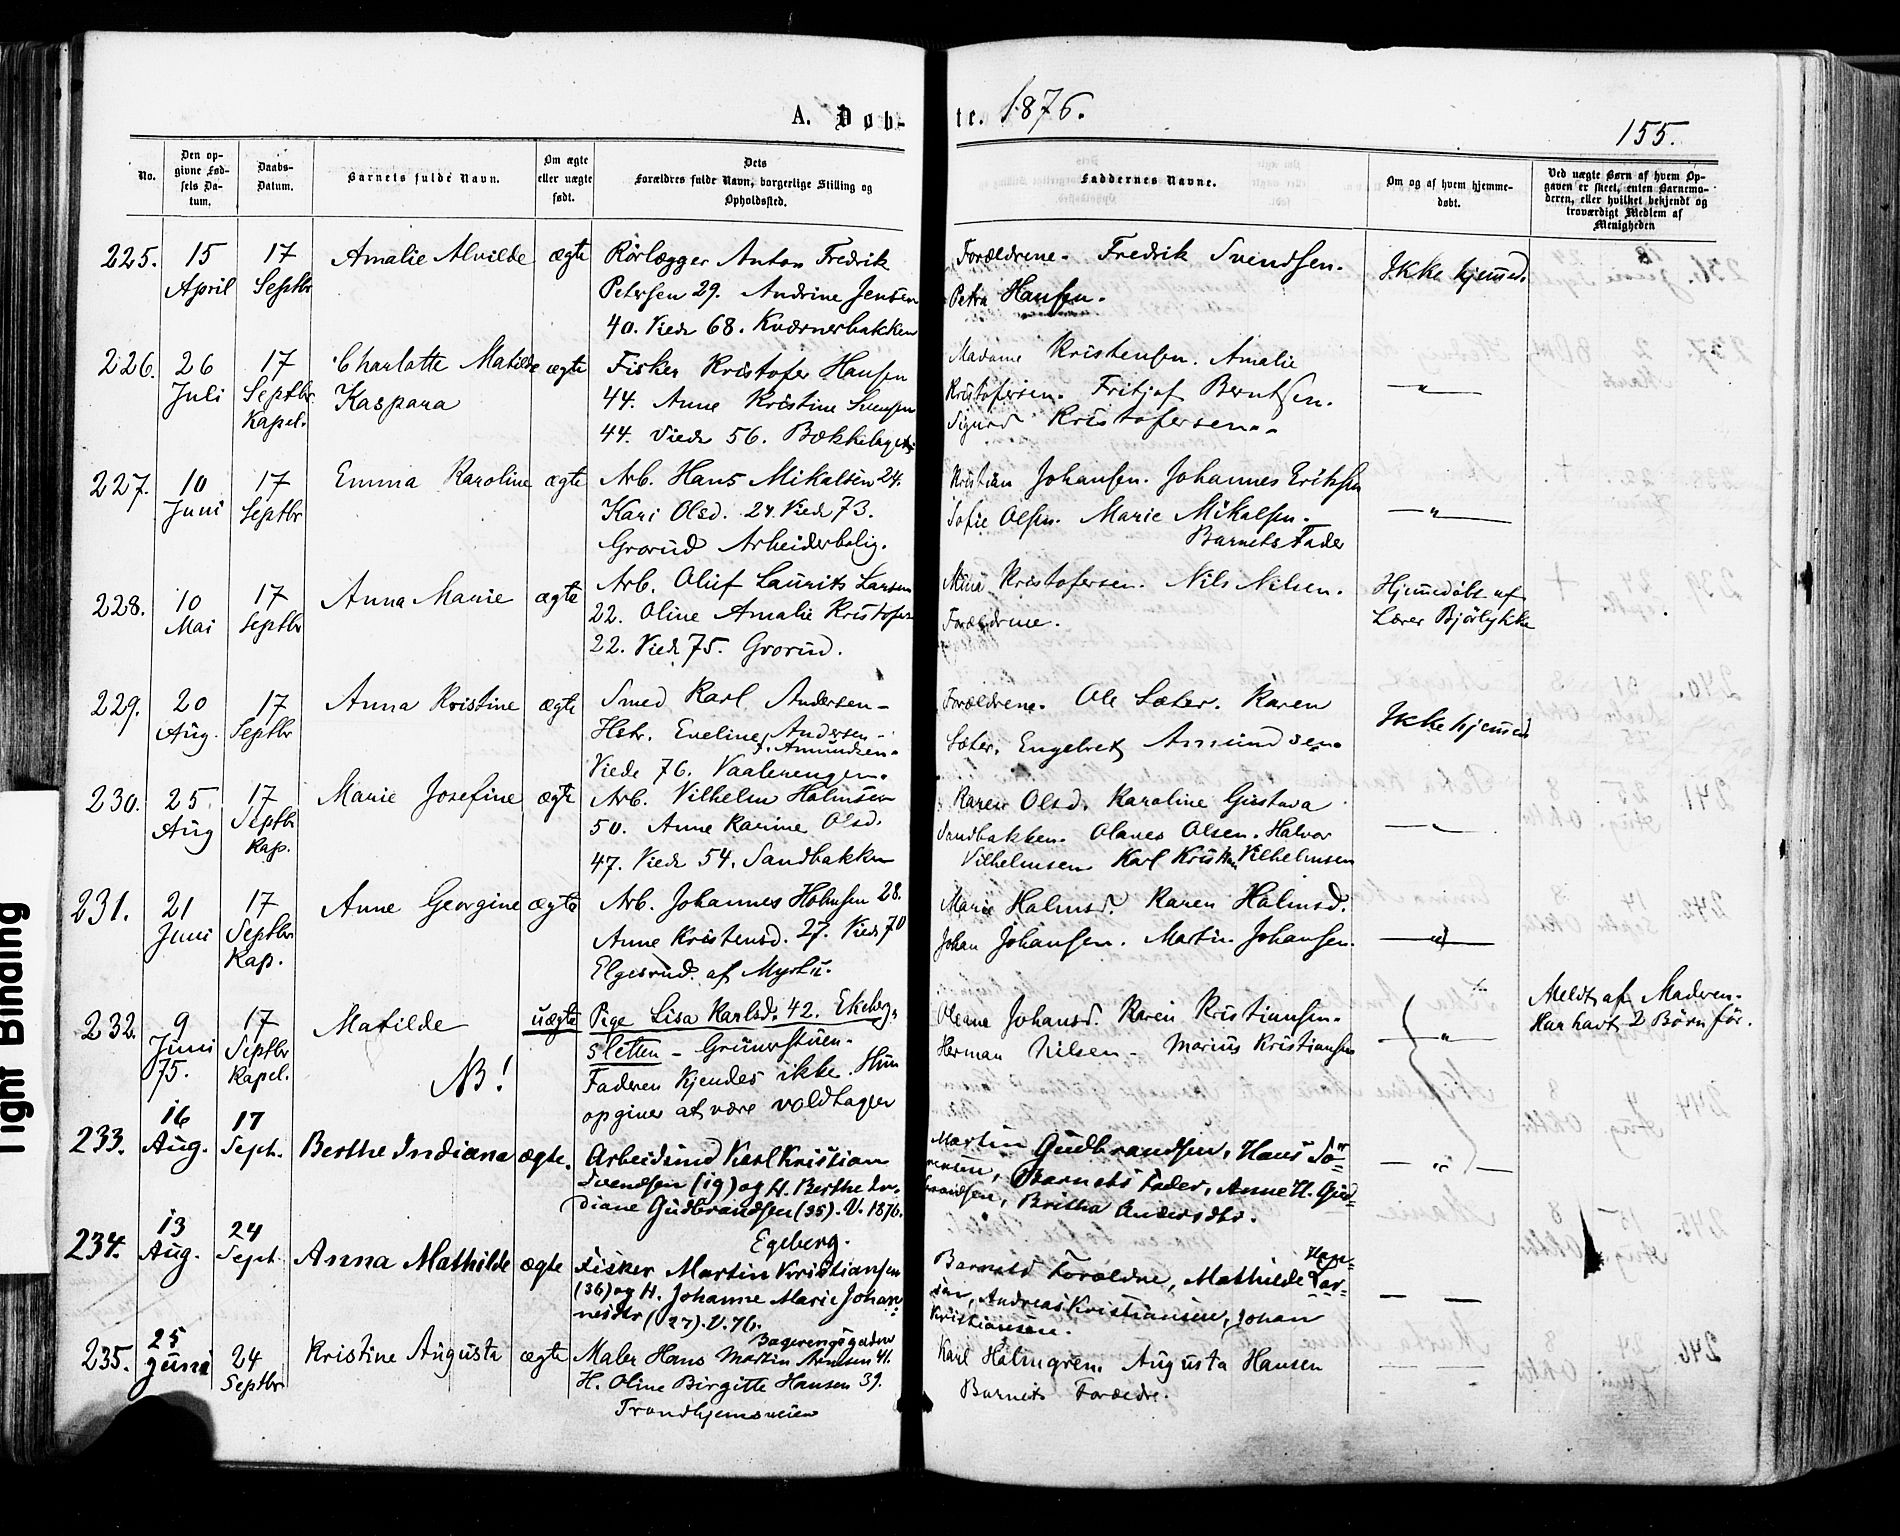 A. Døb-
te. 1876.
155.
No.
Den op-
givne Fød-
sels Da-
tum.
Daabs-
Datum.
Barnets fulde Navn.
Om ægte
eller uægte
født.
Dets
Forældres fulde Navn, borgerlige Stilling og
Opholdssted.
Faddernes Navne.
Om og af hvem hjemme-
døbt.
Ved uægte Børn af hvem Op-
gaven er skeet, enten Barnemo-
deren, eller hvilket bekjendt og
troværdigt Medlem af
Menigheden
225.
15
April
17
Septbr
Amalie Alvilde
ægte
Rörlægger Anton Fredrik
Petersen 29. Andrine Jensen
40. Viede 68. Kværnerbakken
Forældrene. Fredrik Svendsen.
Petra Hansen.
Ikke hjemmed.
226.
26
Juli
17
Septbr
Kapel.
Charlotte Matilde
Kaspara
ægte
Fisker Kristofer Hansen
44. Anne Kristine Svensen
44. Viede 56. Bækkelaget
Madame Kristensen. Amalie
Kristofersen. Fritjof Berntsen.
Sigurd Kristofersen.
— " —
227.
10
Juni
17
Septbr
Emma Karoline
ægte
Arb. Hans Mikalsen 24.
Kari Olsd. 24. Viede 73.
Grorud Arbeiderbolig.
Kristian Johansen. Johannes Eriksen
Sofie Olsen. Marie Mikalsen.
Barnets Fader
— " —
228.
10
Mai
17
Septbr
Anna Marie
ægte
Arb. Oluf Laurits Larsen
22. Oline Amalie Kristofers
22. Viede 75. Grorud.
Mina Kristofersen. Nils Nilsen.
Forældrene.
Hjemmedöbt af
Lærer Bjölykke
229.
20
Aug.
17
Septbr
Anna Kristine
ægte
Smed Karl Andersen –
Hstr. Eveline Andersen –
f. Amundsen.
Viede 76. Vaalerengen.
Forældrene. Ole Sæter. Karen
Sæter. Engebret Amundsen.
Ikke hjemmed
230.
25
Aug
17
Septbr
Kap.
Marie Josefine
ægte
Arb. Vilhelm Halmsen
50. Anne Karine Olsd.
47. Viede 54. Sandbakken
Karen Olsd. Karoline Gustava
Sandbakken. Olaves Olsen. Halvor
Vilhelmsen Karl Kristian Vilhelmsen
— " —
231.
21
Juni
17
Septbr
Kap.
Anne Georgine
ægte
Arb. Johannes Holmsen 28.
Anne Kristensd. 27. Viede 70
Elgesrud af
Marie Halmsd. Karen Halmsd.
Johan Johansen. Martin Johansen.
— " —
232.
9
Juni
75.
17
Septbr
Kapel.
Matilde
NB!
uægte
Pige Lisa Karlsd. 42. Ekeberg-
sletten – Grünerstuen.
Faderen kjendes ikke. Hun
opgiver at være voldtagen
Oleane Johansd. Karen Kristiansen.
Herman Nilsen – Marius Kristiansen
— " —
Meldt af Moderen.
Har havt 2 Børn før.
233.
16
Aug.
17
Sept.
Berthe Indiana
ægte.
Arbeidsmd Karl Kristian
Svendsen (19) og H. Berthe In-
diane Gudbrandsen (25). V. 1876.
Egeberg.
Martin Gudbrandsen, Hans Sö-
rensen, Barnets Fader, Anne H. Gud-
brandsen, Britha Andersdtr.
— " —
234.
13
Aug.
24
Sept.
Anna Mathilde
ægte
Fisker Martin Kristiansen
(36) og H. Johanne Marie Johan-
nesdtr (27). V. 76.
Barnets Foroldre, Mathilde Lar-
sen, Andreas Kristiansen, Johan
Kristiansen.
— —
235.
25
Juni
24
Septbr
Kristine Augusta
ægte
Maler Hans Martin Arntsen 41.
H. Oline Birgitte Hansen 39.
Trondhjemsveien
Karl Holmgren. Augusta Hansen
Barnets Forældre.
Tight Binding